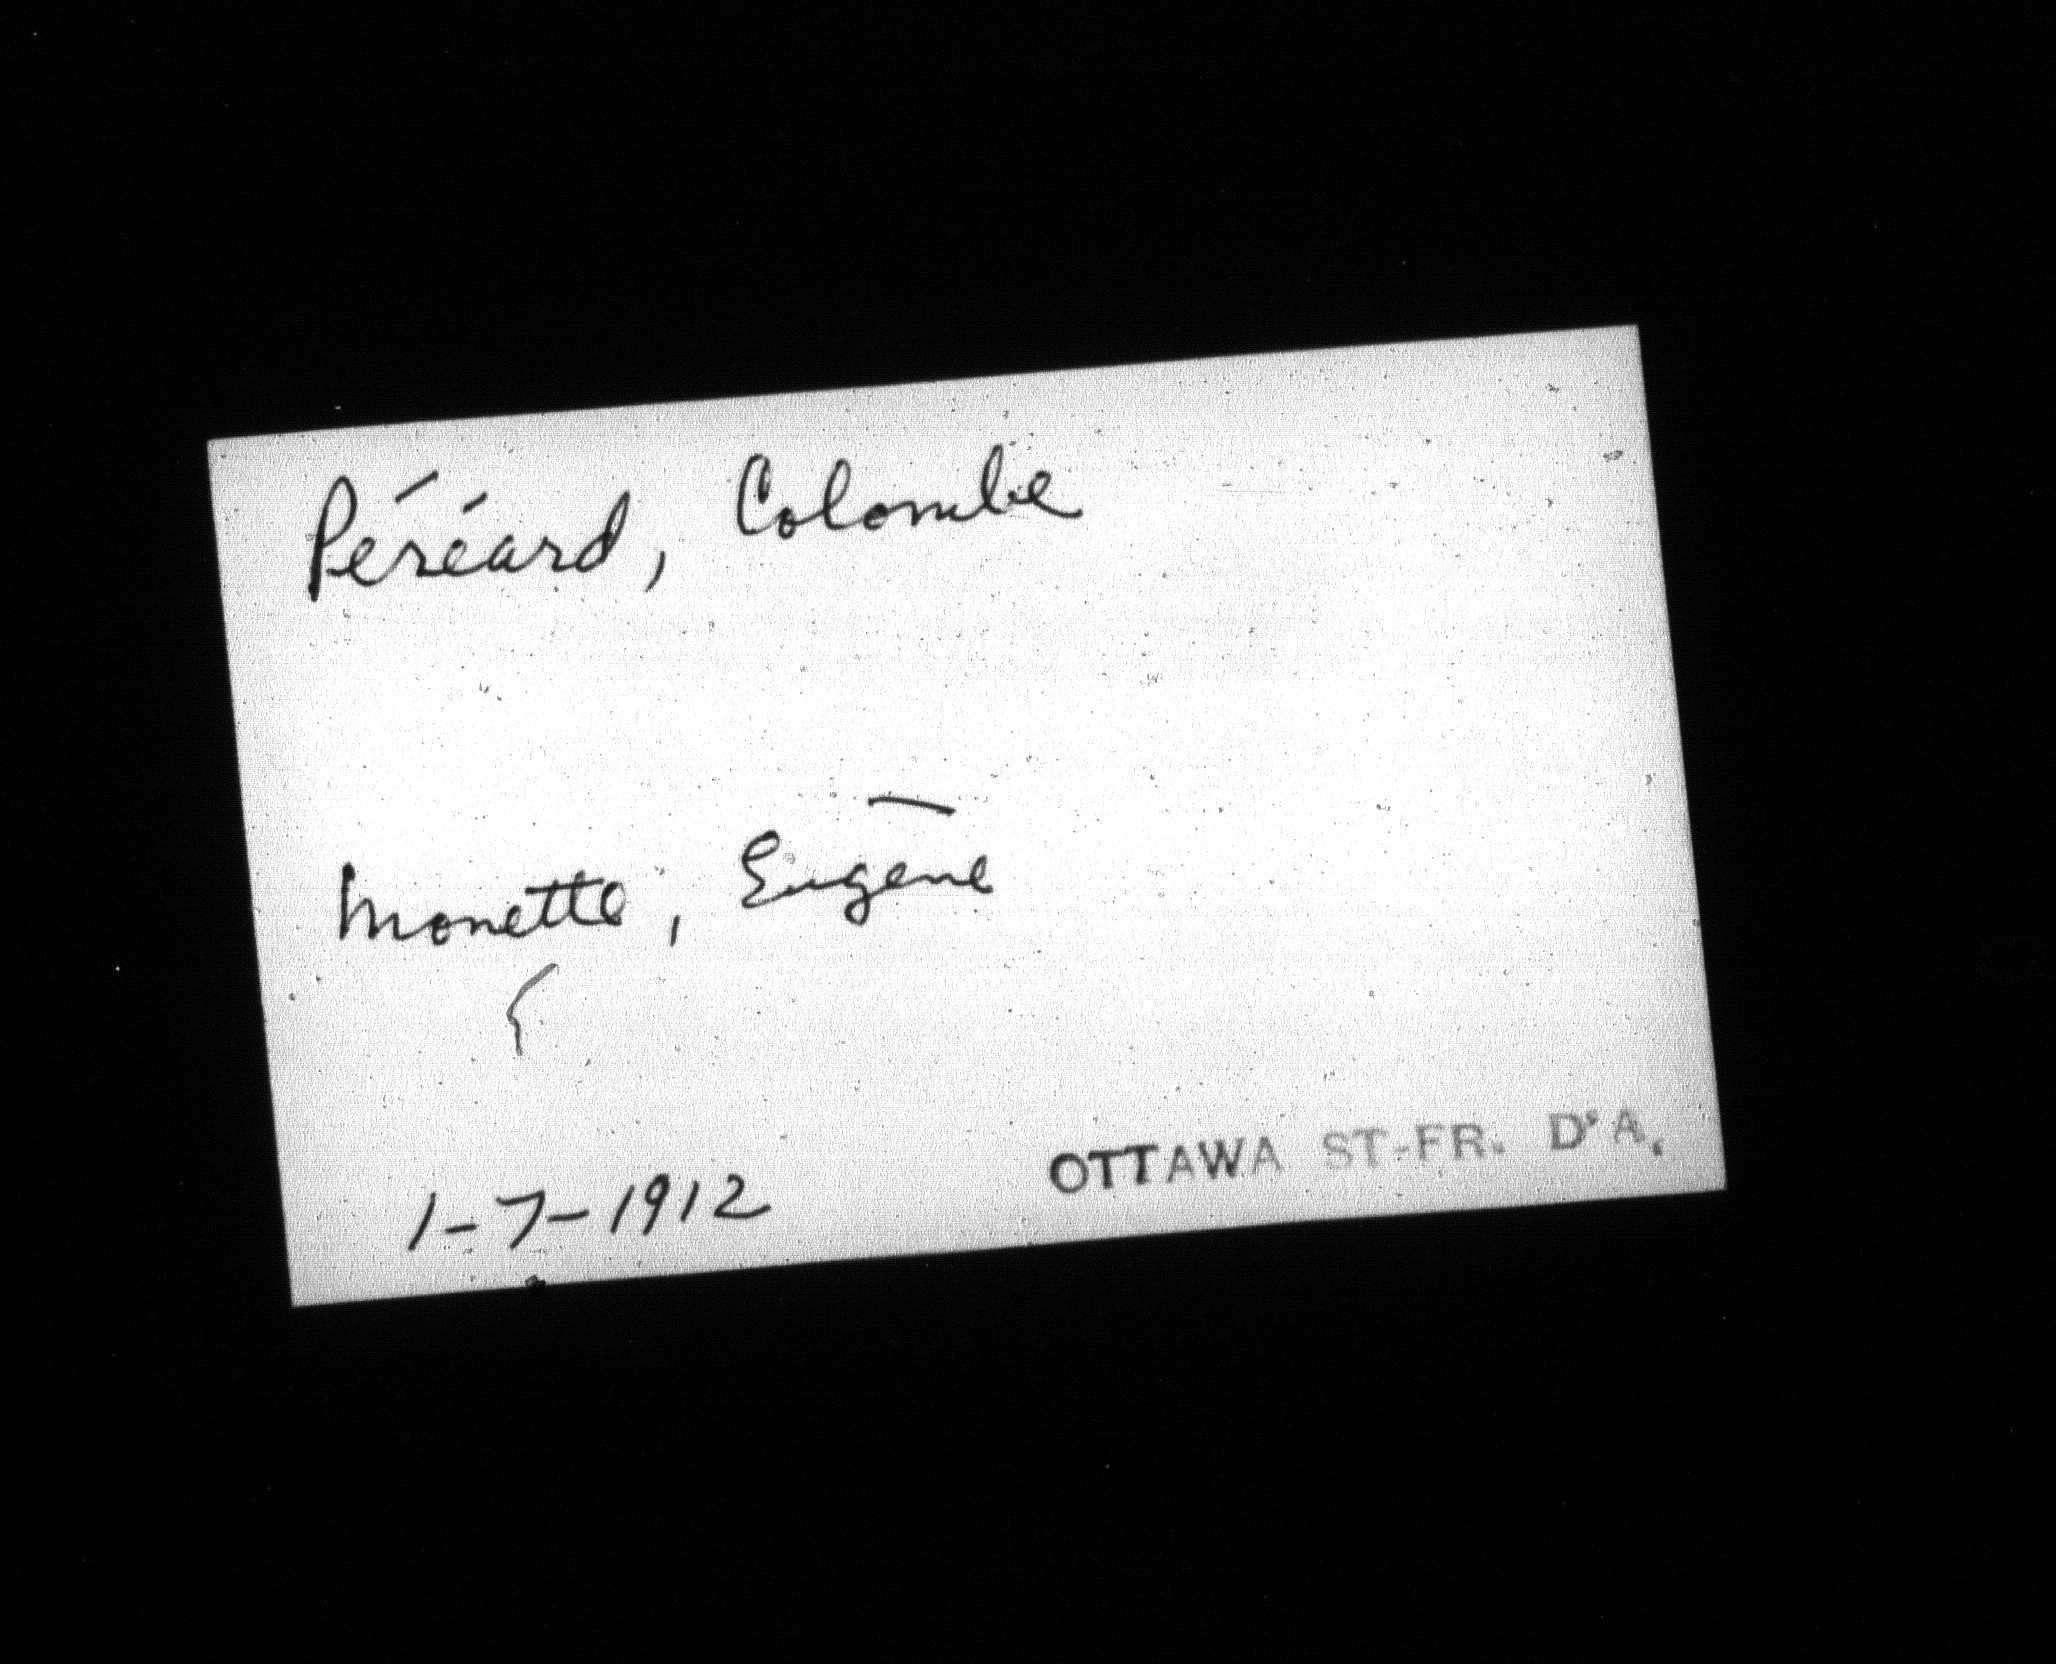 Péréard, Colombe
Monette, Eugène
1-7-1912
OTTAWA ST-FR. D'A.